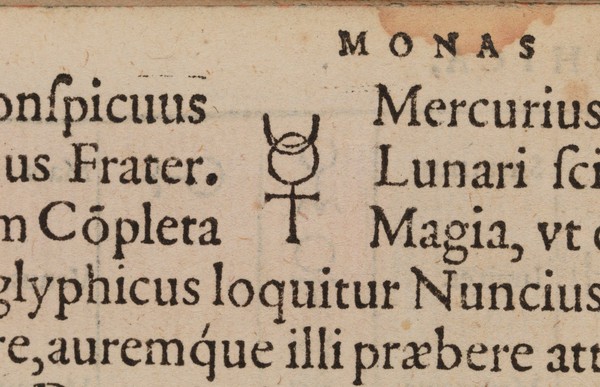 MONAS
onſpicuus ☿ Mercurius
us Frater. Lunari ſci
m Cōpleta Magia, vt
glyphicus loquitur Nuncius
re,auremq́ue illi præbere att